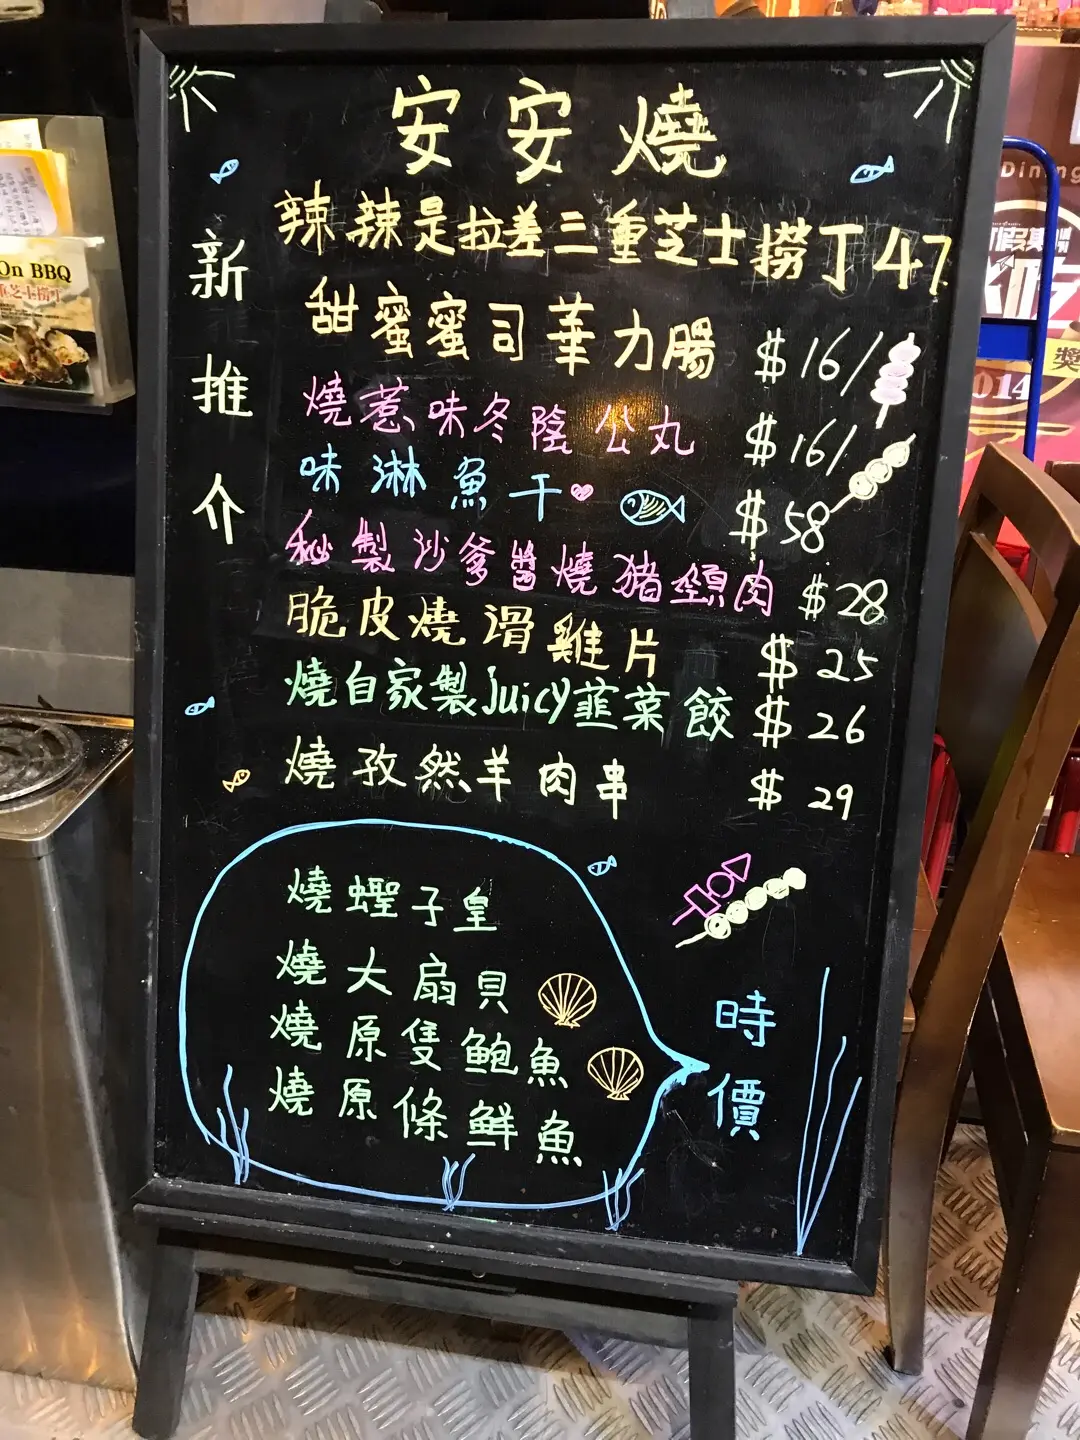 安安燒
新推介
辣辣是拉差三重芝士撈丁 47
甜蜜蜜司華力腸 $16/
燒惹味冬陰公丸 $16/
味淋魚干 $58
秘製沙爹醬燒豬頸肉 $28
脆皮燒滑雞片 $25
燒自家製juicy韮菜餃 $26
燒孜然羊肉串 $29
燒蟶子皇
燒大扇貝
燒原隻鮑魚
燒原條鮮魚
時價
On BBQ
Dining
2014
獎